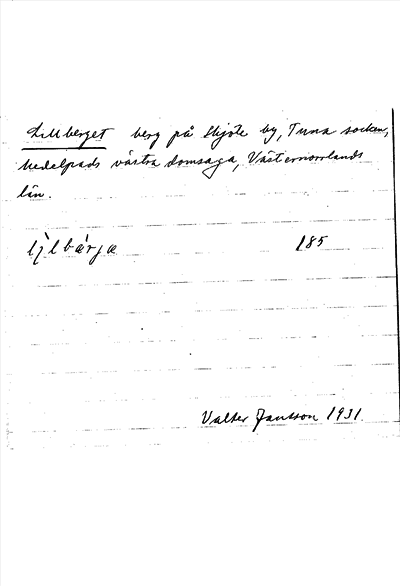 Lillberget berg på Skjöle by, Tuna socken,
Medelpads västra domsaga, Västernorrlands
län.
lìlbǽrja 185
Valter Jansson 1931